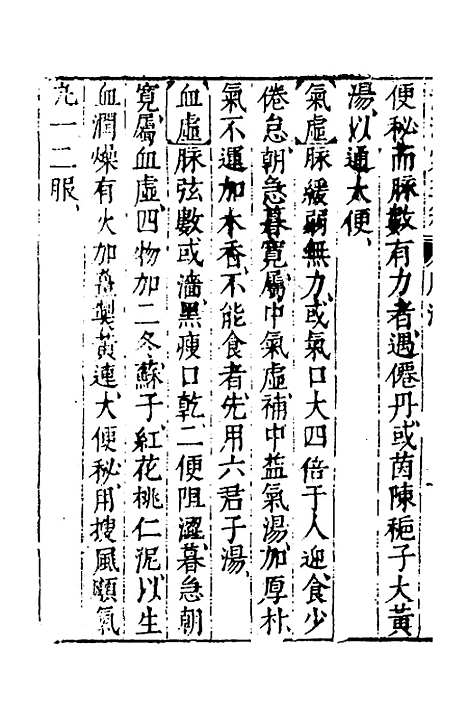 便秘而脉數有力者遇僊丹或茵陳梔子大黃
湯以通大便
氣虛脉緩弱無力或氣口大四倍于人迎食少
倦怠朝急暮寛屬中氣虛補中益氣湯加厚朴
氣不運加木香不能食者先用六君子湯
血虛脉弦數或濇黑瘦口乾二便阻澀暮急朝
寛屬血虛四物加二冬蘇子紅花桃仁泥以生
血潤燥有火加薑製黃連大便秘用搜風順氣
丸一二服